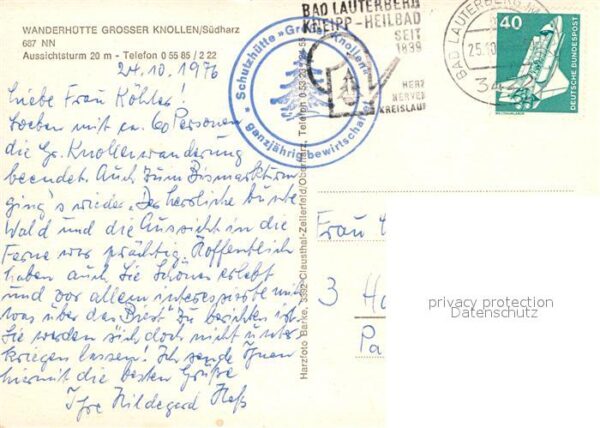 WANDERHÜTTE GROSSER KNOLLEN/Südharz
687 NN
Aussichtsturm 20 m - Telefon 0 55 85 / 2 22
24.10.1976
Liebe Frau Köhler!
Soeben mit ca. 60 Personen
die Gr. Knollenwanderung
beendet. Auch zum Bismarkturm
ging's wieder. Der herrliche bunte
Wald und die Aussicht in die
Ferne war prächtig. Hoffentlich
haben auch Sie Schönes erlebt
und vor allem
was über das zu berichten
Sie werden sich doch nicht unter
kriegen lassen! Ich sende Ihnen
hiermit die besten Grüße
Ihre Hildegard Heß
Schutzhütte »Großer Knollen«
ganzjährig bewirtschaftet
Harzfoto Barke, 3392 Clausthal-Zellerfeld/Oberharz, Telefon
BAD LAUTERBERG
KNEIPP-HEILBAD
SEIT
1839
HERZ
NERVEN
KREISLAUF
BAD LAUTERBERG IM
25.10
40
DEUTSCHE BUNDESPOST
WELTRAUMLABOR
Frau
3 Ha
Pa
privacy protection
Datenschutz